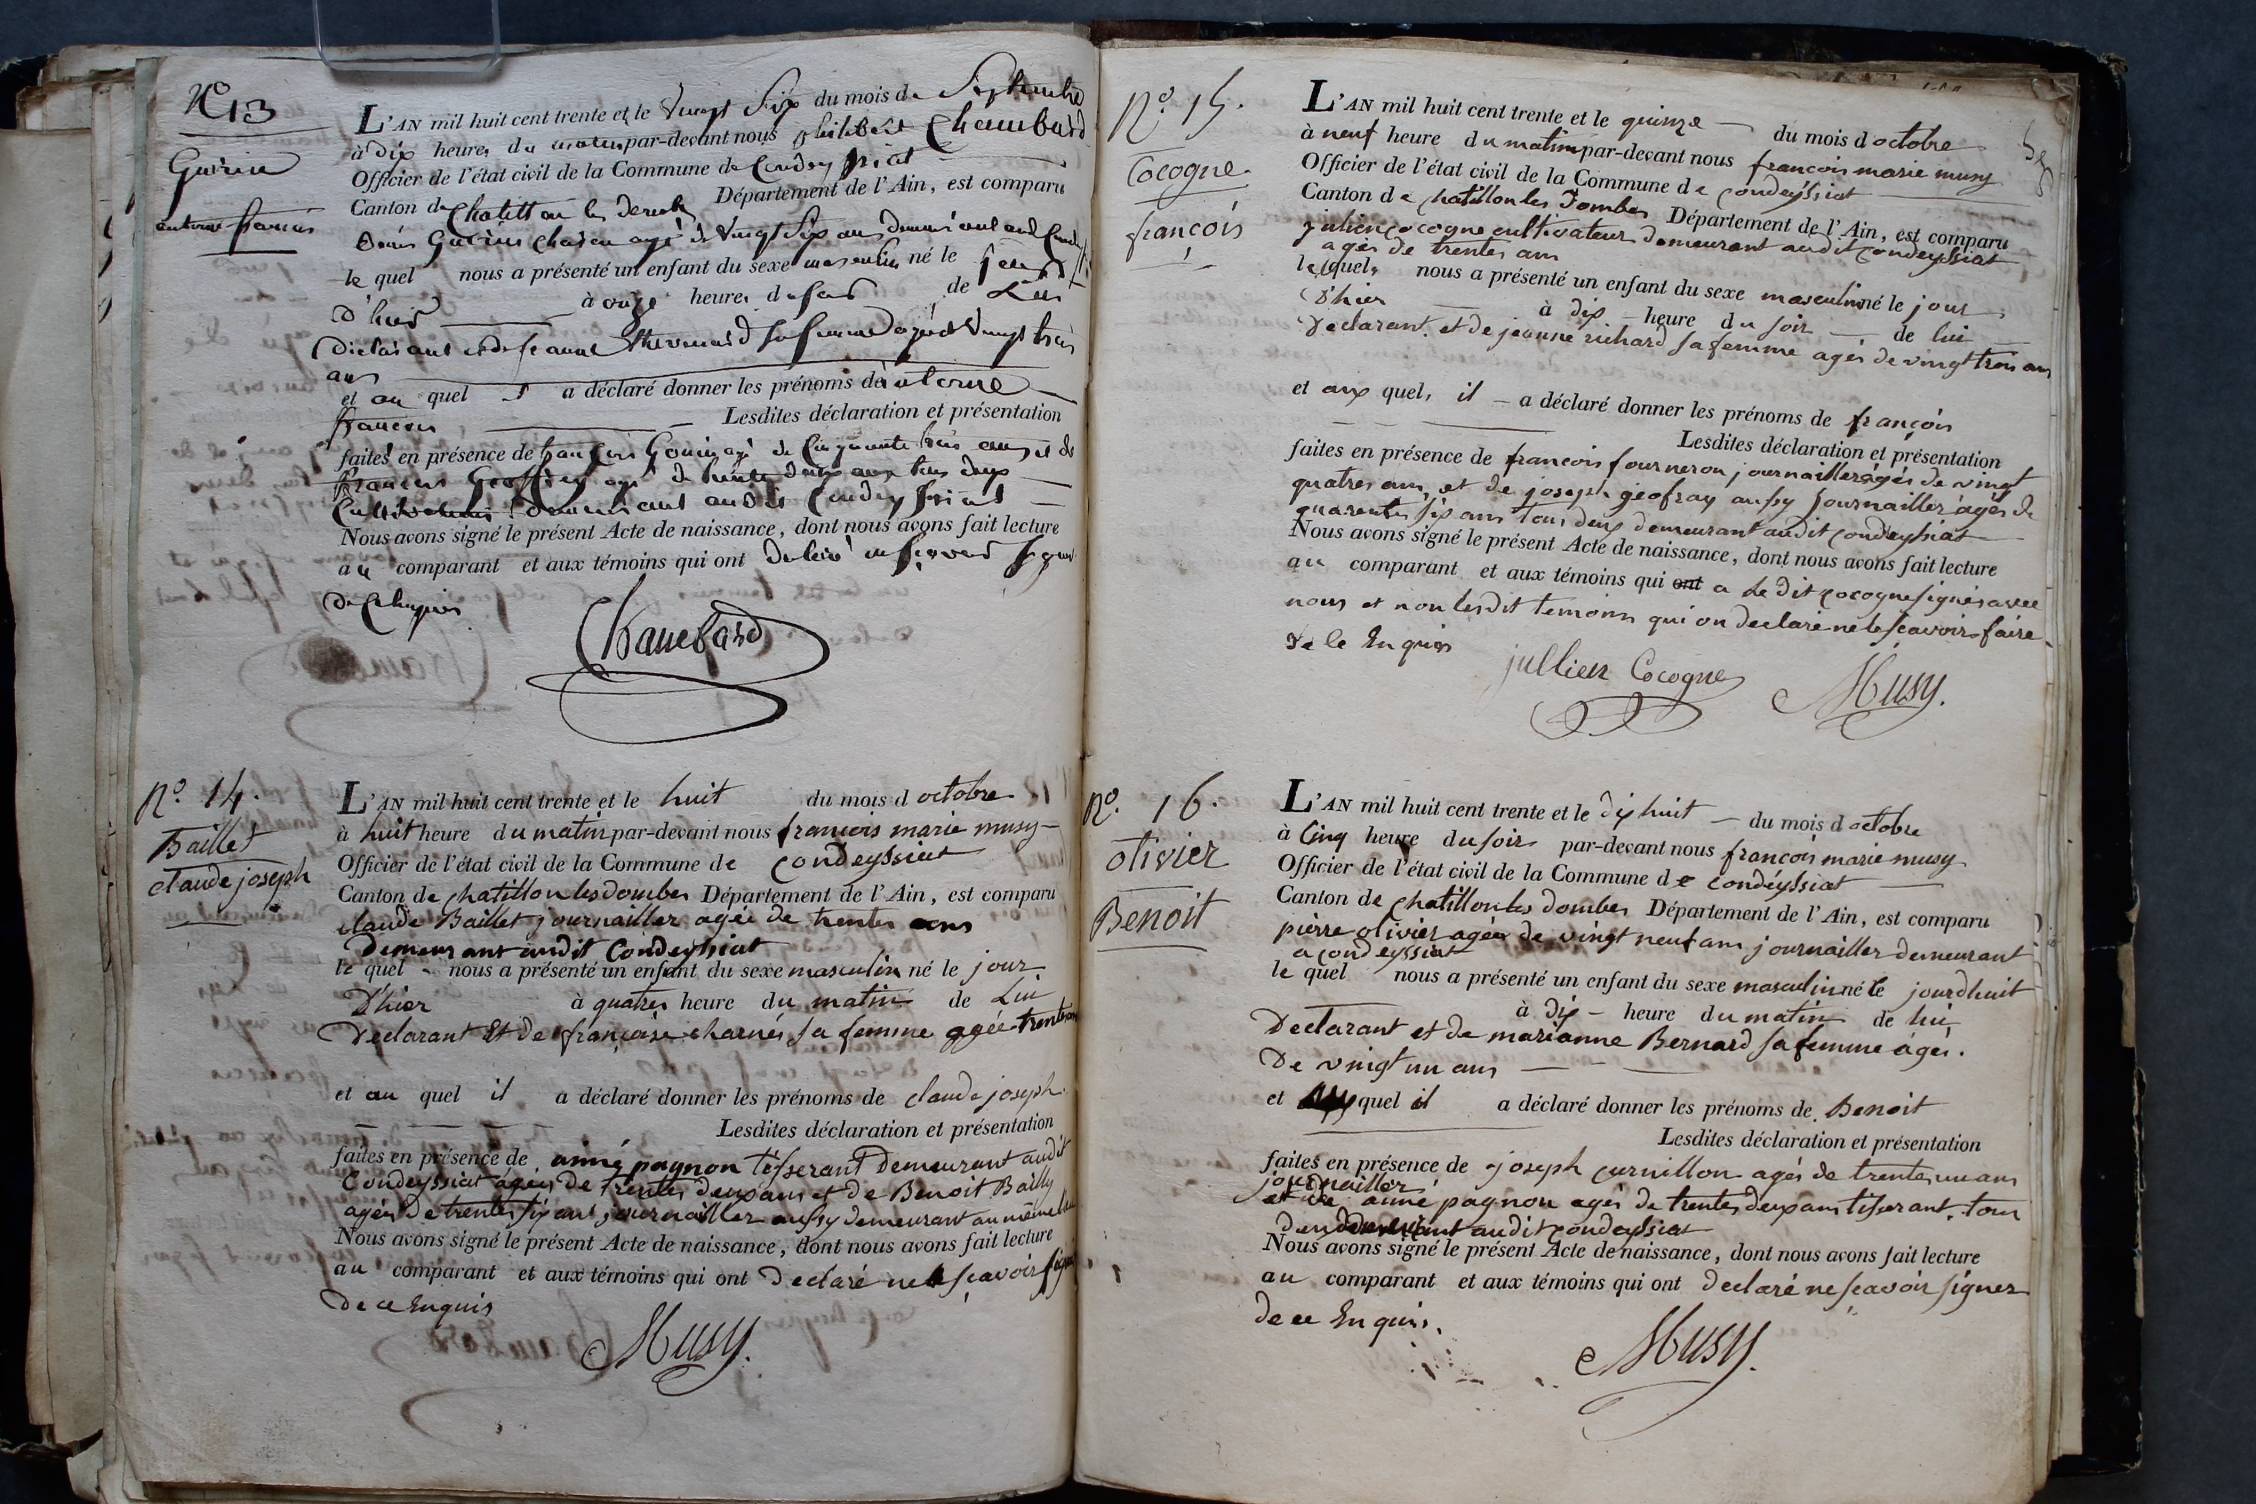 No 13
Guérin
antoine francois
L'AN mil huit cent trente et le Vingt Six du mois de Septembre
à Dix heures du matin par-devant nous philibert Chambard
Officier de l'état civil de la Commune de Condeyssiat
Canton de Chatillon les Dombes Département de l'Ain, est comparu
Guérin agé de Vingt Six ans demeurant audit
le quel nous a présenté un enfant du sexe masculin né le jour
D'hier à onze heures du soir de Lui
Déclarant et de jeanne sa femme agée de Vingt trois
ans
et au quel il a déclaré donner les prénoms de antoine
francois Lesdites déclaration et présentation
faites en présence de francois agé de Cinquante trois ans et de
francois Geoffray agé de trente deux ans tous deux
Cultivateurs demeurant audit Condeyssiat
Nous avons signé le présent Acte de naissance, dont nous avons fait lecture
au comparant et aux témoins qui ont déclaré ne savoir signer
De Ce Enquis
Chambard
No. 14.
Baillet
claude joseph
L'AN mil huit cent trente et le huit du mois d octobre
à huit heure du matin par-devant nous francois marie musy
Officier de l'état civil de la Commune de condeyssiat
Canton de chatillon les dombes Département de l'Ain, est comparu
claude Baillet journailler agée de trentes ans
Demeurant audit Condeyssiat
le quel nous a présenté un enfant du sexe masculin né le jour
D'hier à quatres heure du matin de Lui
Declarant Et de françoise charnés sa femme agée trente ans
et au quel il a déclaré donner les prénoms de claude joseph.
Lesdites déclaration et présentation
faites en présence de aimé pagnon tisserant Demeurant audit
Condeyssiat agés de trentes deux ans et de Benoit Bailly
agés de trentes six ans journailler aussy demeurant au même lieu
Nous avons signé le présent Acte de naissance, dont nous avons fait lecture
au comparant et aux témoins qui ont Declaré ne scavoir signer
De ce Enquis
Musy.
No. 15.
Cocogne.
francois
L'AN mil huit cent trente et le quinze du mois d octobre
à neuf heure du matin par-devant nous francois marie musy
Officier de l'état civil de la Commune de condeyssiat
Canton de chatillon les Dombes Département de l'Ain, est comparu
julien cocogne cultivateur demeurant audit condeyssiat
agés de trentes ans
lequel, nous a présenté un enfant du sexe masculin né le jour
D'hier à dix heure du soir de lui
Declarant et de jeanne richard sa femme agés de vingt trois ans
et aux quel, il a déclaré donner les prénoms de françois
Lesdites déclaration et présentation
faites en présence de francois fourneron journailler agés de vingt
quatres ans, et de joseph geofray aussy journailler agés de
quarentes six ans tous deux demeurant audit condeyssiat
Nous avons signé le présent Acte de naissance, dont nous avons fait lecture
au comparant et aux témoins qui ont a Le dit cocogne signés avec
nous et non lesdit temoins qui on declaré ne le scavoir faire
De le Enquis
jullien Cocogne
Musy.
No. 16.
olivier
Benoit
L'AN mil huit cent trente et le dix huit du mois d octobre
à Cinq heure du soir par-devant nous francois marie musy
Officier de l'état civil de la Commune de condéyssiat
Canton de chatillon les dombes Département de l'Ain, est comparu
pierre olivier agés de vingt neuf ans journailler demeurant
a condeyssiat
le quel nous a présenté un enfant du sexe masculin né le jourdhuit
à dix heure du matin de lui
Declarant et de marianne Bernard sa femme ágés.
De vingt un ans
et quel il a déclaré donner les prénoms de Benoit
Lesdites déclaration et présentation
faites en présence de joseph curnillon agés de trentes un ans
journailler
et de aimé pagnon agés de trentes deux ans tisserant, tous
deux demeurant audit condeyssiat
Nous avons signé le présent Acte de naissance, dont nous avons fait lecture
au comparant et aux témoins qui ont declaré ne scavoir signer
de ce Enquis.
Musy.